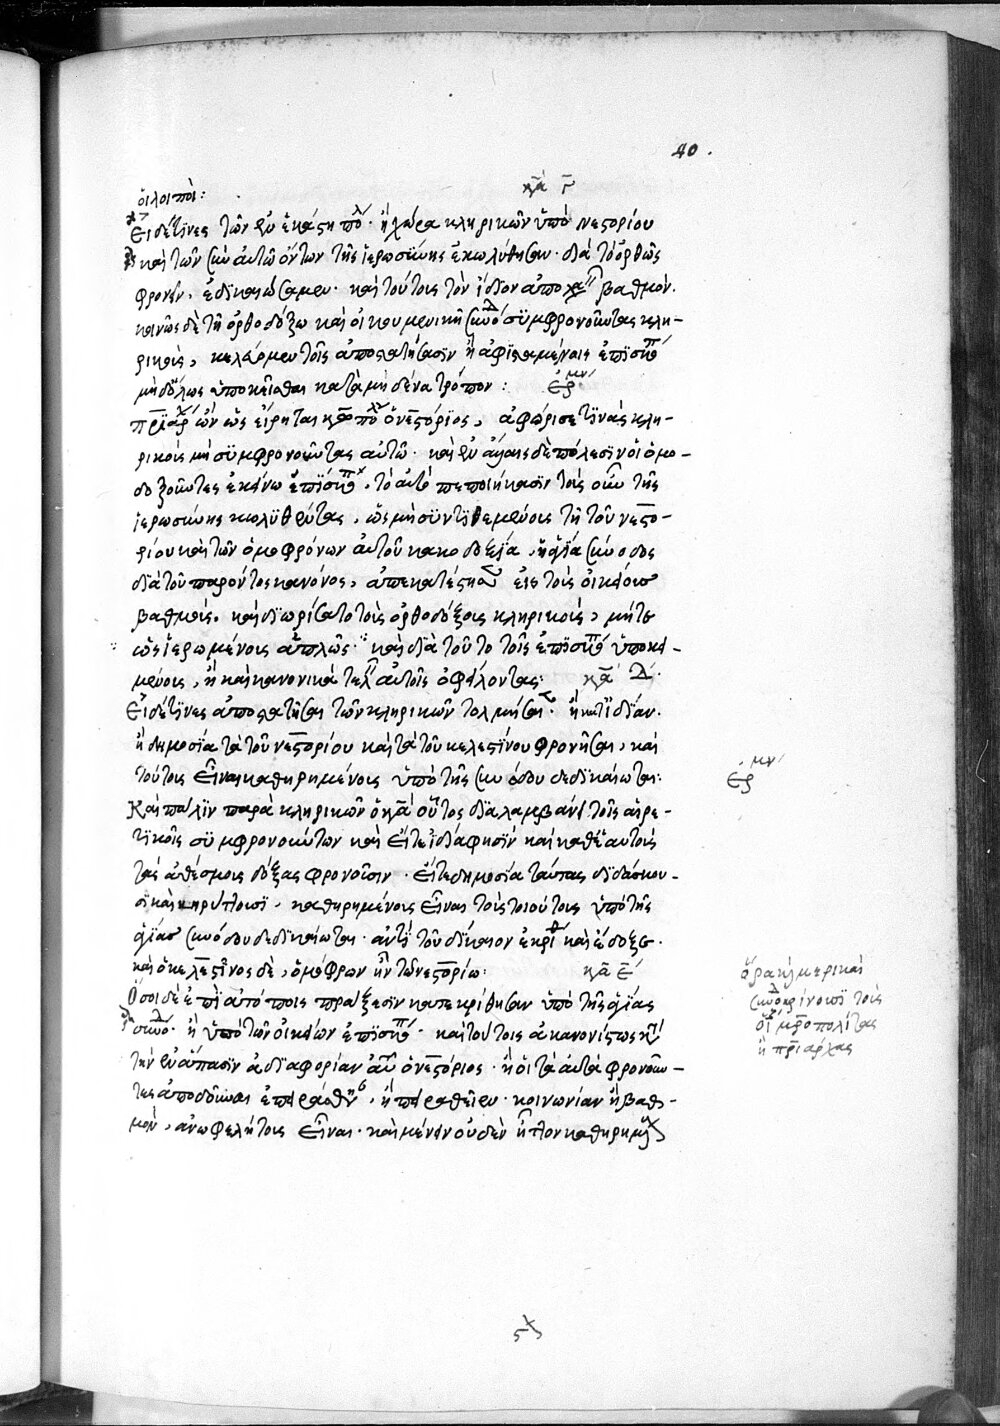 40.
οἱ λοιποί:
κα γ
Εἰ δέ τινες τῶν ἐν ἑκάστῃ πόλ ἢ χώρα κληρικῶν ὑπὸ Νεστορίου
καὶ τῶν σὺν αὐτῶ ὄντων τῆς ἱερωσύνης ἐκωλύθησαν διὰ τὸ ὀρθῶς
φρονεῖν, ἐδικαιώσαμεν καὶ τούτοις τὸν ἴδιον βαθμόν.
κοινῶς δὲ τῆ ὀρθοδόξω καὶ οἰκουμενικῆ συνόδ συμφρονοῦντας κλη-
ρικοὺς, κελεύομεν τοῖς ἀποστατήσασιν ἢ ἀφισταμένοις ἐπισκ
μὴδόλως ὑποκεῖσθαι κατὰ μηδένα τρόπον: ἑρμην
πατριάρχ ὢν ὡς εἴρηται ὁ νεστόριος, ἀφώρισε τινὰς κλη-
ρικοὺς μὴ συμφρονοῦντας αὐτῶ. καὶ ἐν ἄλλαις δὲ πόλεσιν οἱ ὁμο-
δοξοῦντες ἐκείνω ἐπίσκ, τὸ αὐτὸ πεποιήκασιν τοὺς οὖν τῆς
ἱερωσύνης κωλυθέντας, ὡς μὴ συντιθεμένους τῆ τοῦ νεστο-
ρίου καὶ τῶν ὁμοφρόνων αὐτοῦ κακοδοξία, ἡ ἁγία σύνοδος
διὰ τοῦ παρόντος κανόνος, ἀπεκατέστησεν εἰς τοὺς οἰκείους
βαθμούς. καὶ διωρίσατο τοὺς ὀρθοδόξους κληρικούς, μήτε
ὡς ἱερωμένοις ἁπλῶς καὶ διὰ τοῦτο τοῖς ἐπισκ ὑποκει-
μένοις, ἢ καὶ κανονικὰ τελ αὐτοῖς ὀφείλοντας: κα δ
Εἰ δέ τινες ἀποστατῆσαι τῶν κληρικῶν τολμήσαιεν ἢ κατιδίαν
ἢ δημοσία τὰ τοῦ νεστορίου καὶ τὰ τοῦ κελεστίνου φρονῆσαι, καὶ
τούτους εἶναι καθηρημένους ὑπὸ τῆς συνόδου δεδικαίωται:
ἑρμην
Καὶ πάλιν παρὰ κληρικῶν ὁ κα οὗτος διαλαμβάνει τοῖς αἱρε-
τικοῖς συμφρονούντων καὶ εἴτε ἰδία φησὶν καὶ καθ᾽ ἑαυτοὺς
τὰς ἀθέσμους δόξας φρονοῦσιν εἴτε δημοσία ταύτας διδάσκου-
σι καὶ κηρύττουσι, καθηρημένους εἶναι τοὺς τοιούτους ὑπὸ τῆς
ἁγίας συνόδου δεδικαίωται. ἀντὶ τοῦ δίκαιον ἐκρίθ καὶ ἔδοξεν.
καὶ ὁ κελεστῖνος δὲ, ὁμόφρων ἦν τῶ νεστορίω: κα ε
Ὅσοι δὲ ἐπὶ ἀτόποις πράξεσιν κατεκρίθησαν ὑπὸ τῆς ἁγίας
συνόδ ἢ ὑπὸ τῶν οἰκείων ἐπισκ καὶ τούτοις ἀκανονίστως κατ
τὴν ἐν ἅπασιν ἀδιαφορίαν αὐτοῦ ὁ νεστόριος ἢ οἱ τὰ αὐτὰ φρονοῦν-
τες ἀποδοῦναι ἐπειράθησ, ἢ πειραθεῖεν κοινωνίαν ἢ βαθ-
μὸν, ἀνωφελήτους εἶναι καὶ μένειν οὐδὲν ἧττον καθηρημέν
ὅρα καὶ μερικαὶ
σύνοδ κρίνουσι τοὺς
οἱ μητροπολίτας
ἢ πατριάρχας